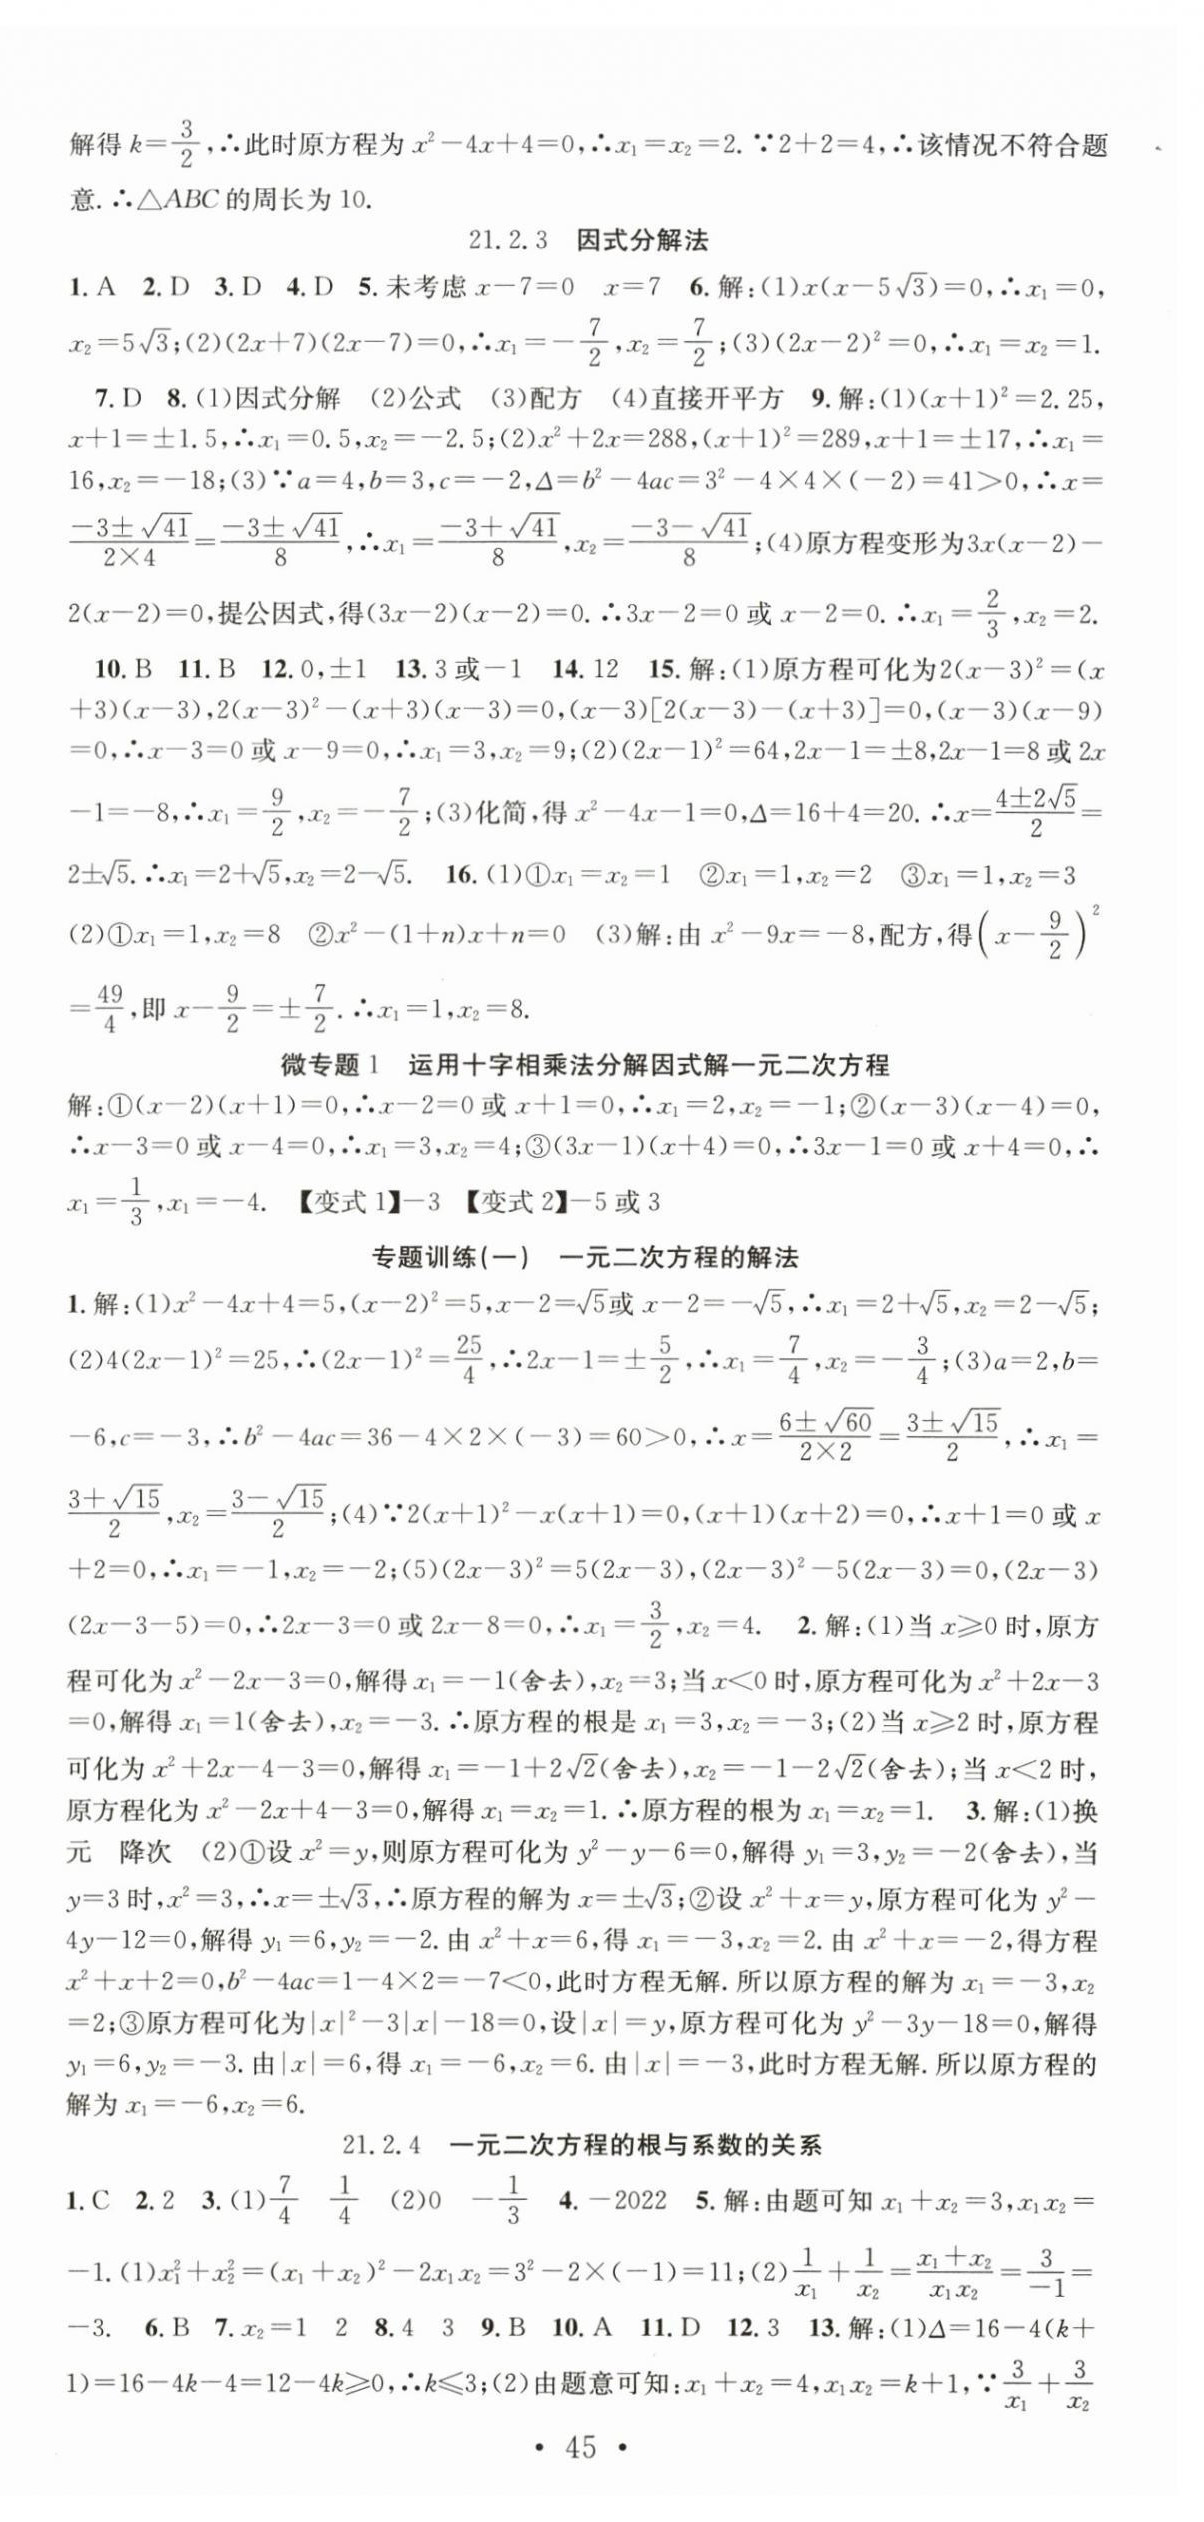 解得 k=3/2,∴此时原方程为 x²-4x+4=0,∴x₁=x₂=2.∵2+2=4,∴该情况不符合题
意.∴△ABC的周长为 10.
21.2.3 因式分解法
1.A 2.D 3.D 4.D 5.未考虑 x-7=0 x=7 6.解:(1)x(x-5√3)=0,∴x₁=0,
x₂=5√3;(2)(2x+7)(2x-7)=0,∴x₁=-7/2,x₂=7/2;(3)(2x-2)²=0,∴x₁=x₂=1.
7.D 8.(1)因式分解 (2)公式 (3)配方 (4)直接开平方 9.解:(1)(x+1)²=2.25,
x+1=±1.5,∴x₁=0.5,x₂=-2.5;(2)x²+2x=288,(x+1)²=289,x+1=±17,∴x₁=
16,x₂=-18;(3)∵a=4,b=3,c=-2,Δ=b²-4ac=3²-4×4×(-2)=41>0,∴x=
(-3±√41)/(2×4)=(-3±√41)/8,∴x₁=(-3+√41)/8,x₂=(-3-√41)/8;(4)原方程变形为3x(x-2)-
2(x-2)=0,提公因式,得(3x-2)(x-2)=0.∴3x-2=0 或 x-2=0.∴x₁=2/3,x₂=2.
10.B 11.B 12.0,±1 13.3 或-1 14.12 15.解:(1)原方程可化为2(x-3)²=(x
+3)(x-3),2(x-3)²-(x+3)(x-3)=0,(x-3)[2(x-3)-(x+3)]=0,(x-3)(x-9)
=0,∴x-3=0 或 x-9=0,∴x₁=3,x₂=9;(2)(2x-1)²=64,2x-1=±8,2x-1=8 或 2x
-1=-8,∴x₁=9/2,x₂=-7/2;(3)化简,得 x²-4x-1=0,Δ=16+4=20.∴x=(4±2√5)/2=
2±√5.∴x₁=2+√5,x₂=2-√5. 16.(1)①x₁=x₂=1 ②x₁=1,x₂=2 ③x₁=1,x₂=3
(2)①x₁=1,x₂=8 ②x²-(1+n)x+n=0 (3)解:由 x²-9x=-8,配方,得(x-9/2)²
=49/4,即 x-9/2=±7/2.∴x₁=1,x₂=8.
微专题 1 运用十字相乘法分解因式解一元二次方程
解:①(x-2)(x+1)=0,∴x-2=0 或 x+1=0,∴x₁=2,x₂=-1;②(x-3)(x-4)=0,
∴x-3=0 或 x-4=0,∴x₁=3,x₂=4;③(3x-1)(x+4)=0,∴3x-1=0 或 x+4=0,∴
x₁=1/3,x₁=-4. 【变式 1】-3 【变式 2】-5 或 3
专题训练(一) 一元二次方程的解法
1.解:(1)x²-4x+4=5,(x-2)²=5,x-2=√5或 x-2=-√5,∴x₁=2+√5,x₂=2-√5;
(2)4(2x-1)²=25,∴(2x-1)²=25/4,∴2x-1=±5/2,∴x₁=7/4,x₂=-3/4;(3)a=2,b=
-6,c=-3,∴b²-4ac=36-4×2×(-3)=60>0,∴x=(6±√60)/(2×2)=(3±√15)/2,∴x₁=
(3+√15)/2,x₂=(3-√15)/2;(4)∵2(x+1)²-x(x+1)=0,(x+1)(x+2)=0,∴x+1=0 或 x
+2=0,∴x₁=-1,x₂=-2;(5)(2x-3)²=5(2x-3),(2x-3)²-5(2x-3)=0,(2x-3)
(2x-3-5)=0,∴2x-3=0 或 2x-8=0,∴x₁=3/2,x₂=4. 2.解:(1)当 x≥0 时,原方
程可化为 x²-2x-3=0,解得 x₁=-1(舍去),x₂=3;当 x<0 时,原方程可化为 x²+2x-3
=0,解得 x₁=1(舍去),x₂=-3.∴原方程的根是 x₁=3,x₂=-3;(2)当 x≥2 时,原方程
可化为 x²+2x-4-3=0,解得 x₁=-1+2√2(舍去),x₂=-1-2√2(舍去);当 x<2 时,
原方程化为 x²-2x+4-3=0,解得 x₁=x₂=1.∴原方程的根为 x₁=x₂=1. 3.解:(1)换
元 降次 (2)①设 x²=y,则原方程可化为 y²-y-6=0,解得 y₁=3,y₂=-2(舍去),当
y=3 时,x²=3,∴x=±√3,∴原方程的解为 x=±√3;②设 x²+x=y,原方程可化为 y²-
4y-12=0,解得 y₁=6,y₂=-2.由 x²+x=6,得 x₁=-3,x₂=2.由 x²+x=-2,得方程
x²+x+2=0,b²-4ac=1-4×2=-7<0,此时方程无解.所以原方程的解为 x₁=-3,x₂
=2;③原方程可化为|x|²-3|x|-18=0,设|x|=y,原方程可化为 y²-3y-18=0,解得
y₁=6,y₂=-3.由|x|=6,得 x₁=-6,x₂=6.由|x|=-3,此时方程无解.所以原方程的
解为 x₁=-6,x₂=6.
21.2.4 一元二次方程的根与系数的关系
1.C 2.2 3.(1)7/4 1/4 (2)0 -1/3 4.-2022 5.解:由题可知 x₁+x₂=3,x₁x₂=
-1.(1)x₁²+x₂²=(x₁+x₂)²-2x₁x₂=3²-2×(-1)=11;(2)1/x₁+1/x₂=(x₁+x₂)/(x₁x₂)=3/(-1)=
-3. 6.B 7.x₂=1 2 8.4 3 9.B 10.A 11.D 12.3 13.解:(1)Δ=16-4(k+
1)=16-4k-4=12-4k≥0,∴k≤3;(2)由题意可知:x₁+x₂=4,x₁x₂=k+1,∵3/x₁+3/x₂
• 45 •